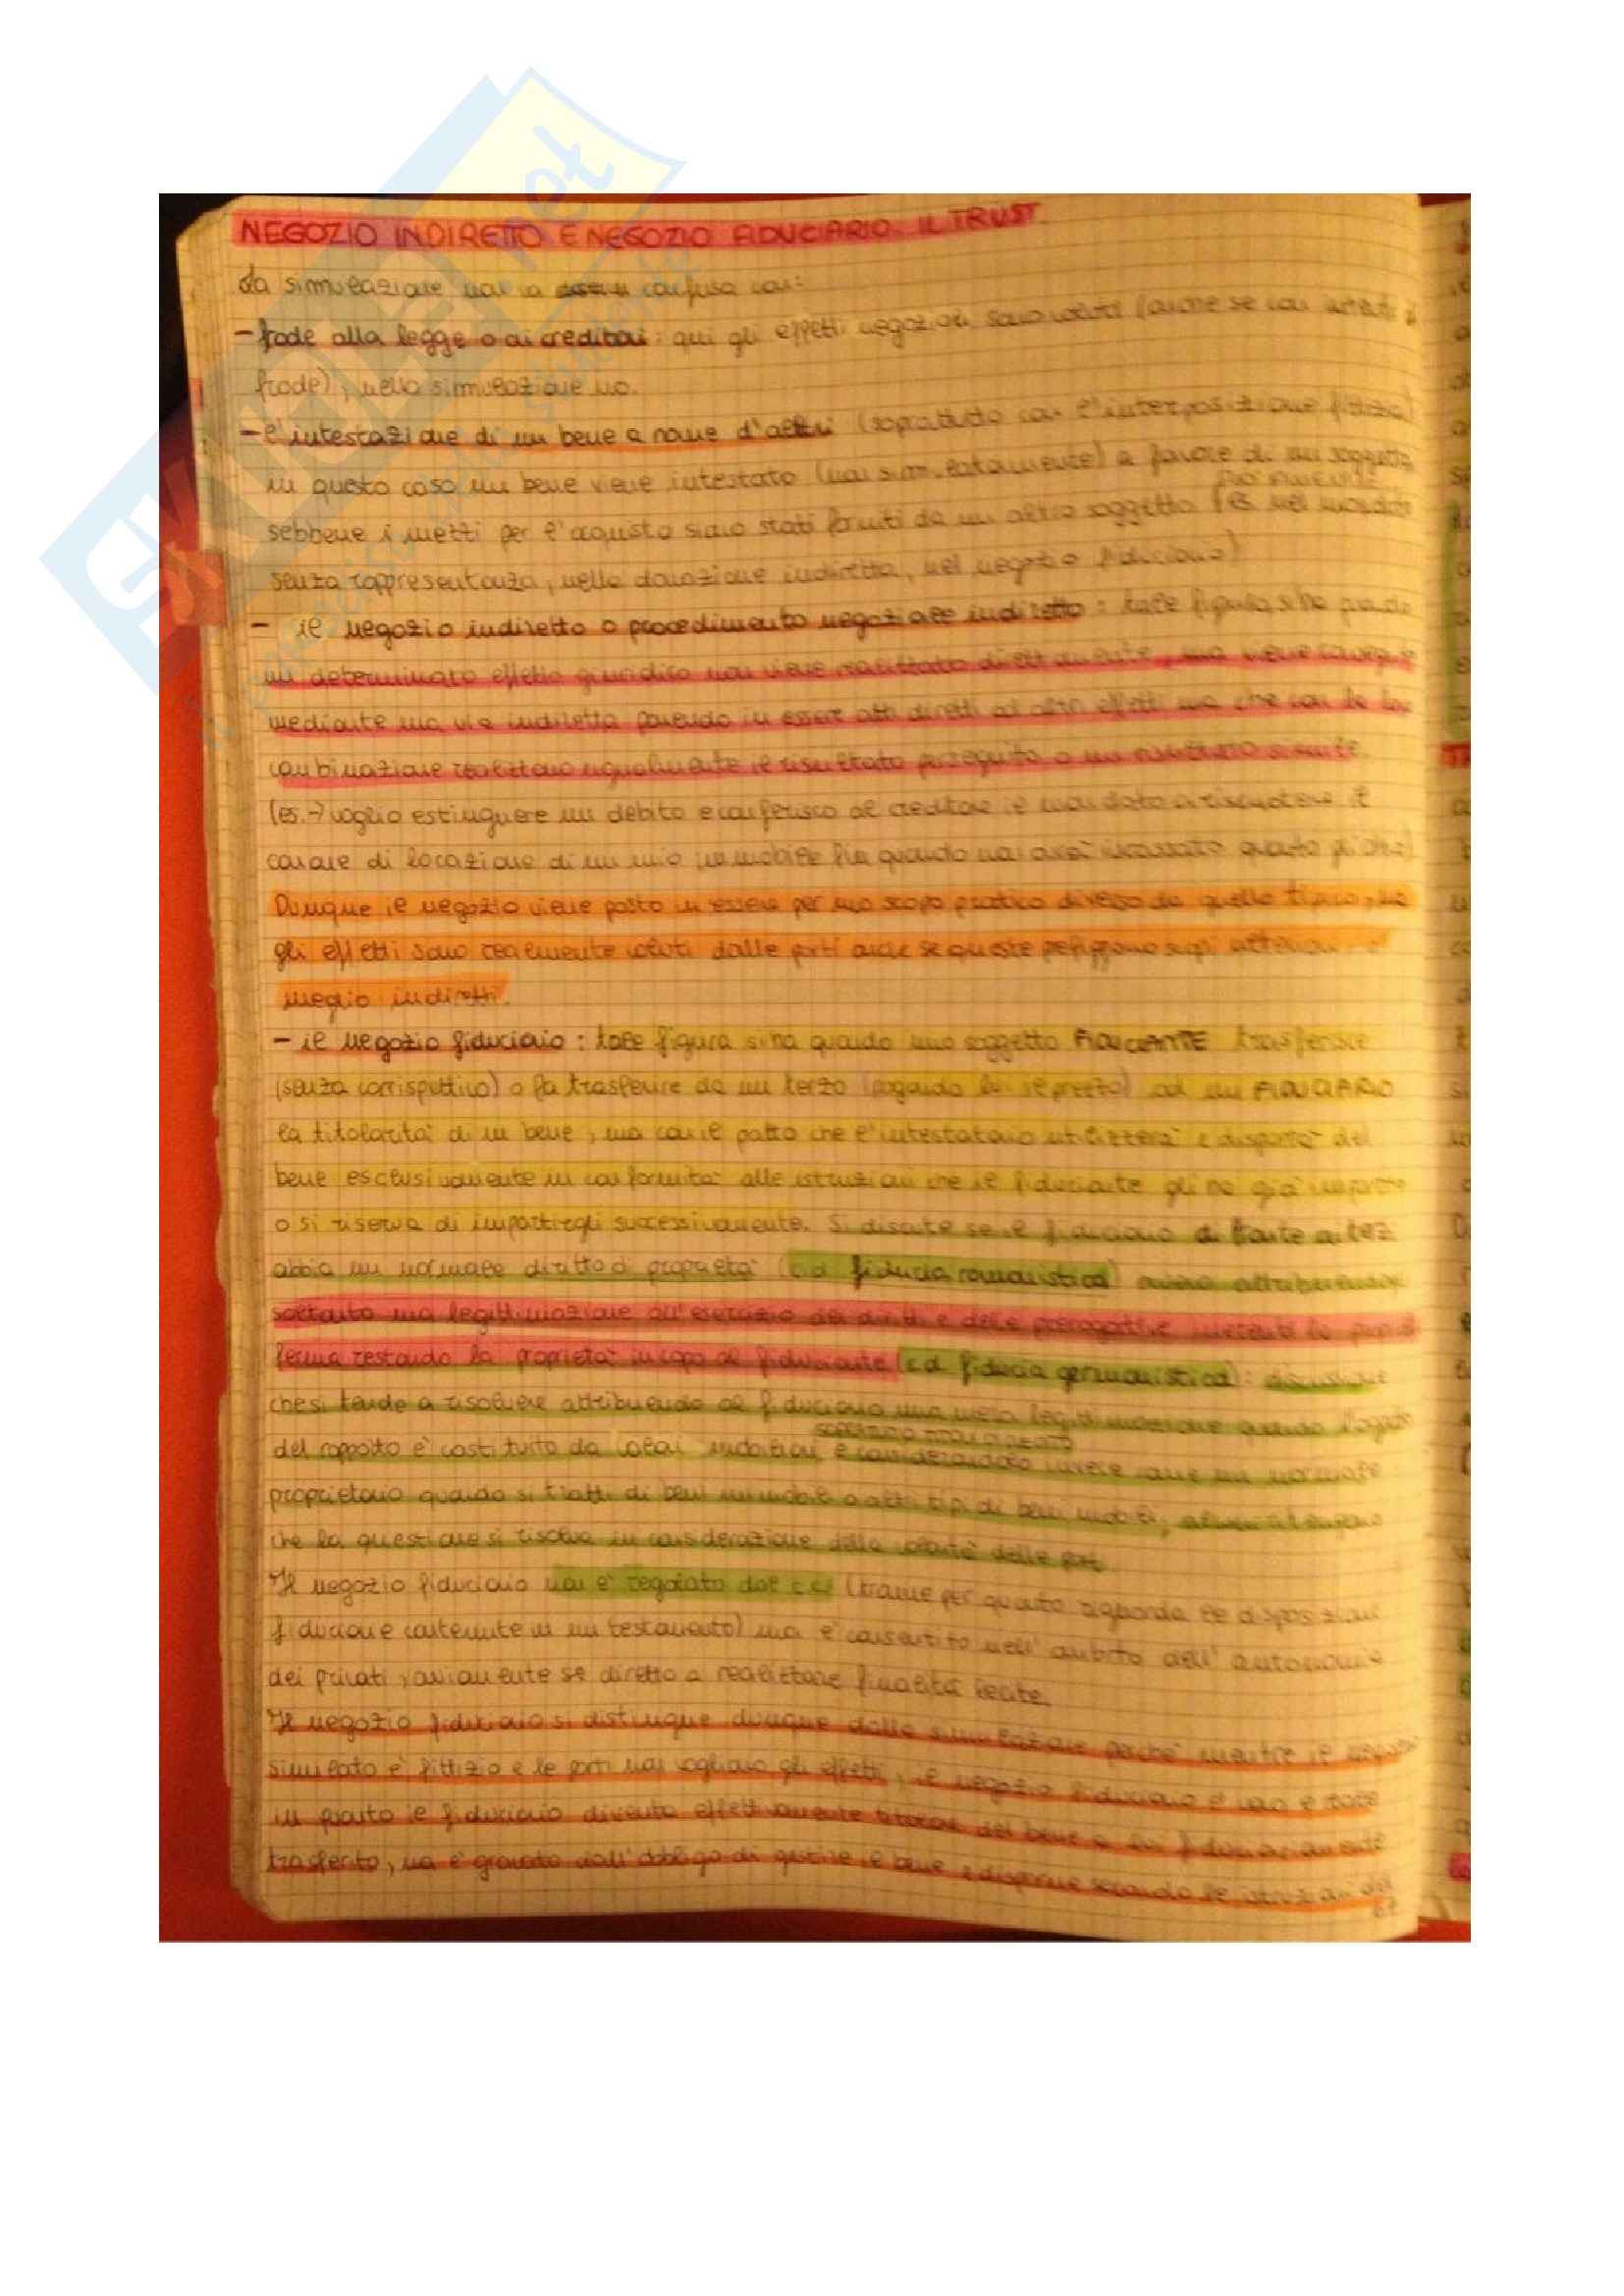 NEGOZIO INDIRETTO E NEGOZIO FIDUCIARIO. IL TRUST
La simulazione non va confusa con:
- frode alla legge o ai creditori: qui gli effetti negoziali sono voluti (anche se con
frode), nella simulazione no.
- l'intestazione di un bene a nome d'altri (soprattutto con l'interposizione fittizia)
in questo caso un bene viene intestato (non simulatamente) a favore di un soggetto
sebbene i mezzi per l'acquisto siano stati forniti da un altro soggetto (es. nel mandato
senza rappresentanza, nella donazione indiretta, nel negozio fiduciario)
- il negozio indiretto o procedimento negoziale indiretto: tale figura si ha quando
un determinato effetto giuridico non viene realizzato direttamente, ma viene
mediante una via indiretta ponendo in esser atti diretti ad altri effetti ma che con la loro
combinazione realizzano ugualmente il risultato perseguito o un risultato simile.
(es. → voglio estinguere un debito e conferisco al creditore il mandato a riscuotere il
canone di locazione di un mio immobile fin quando non avrà incassato quanto
Dunque il negozio viene posto in essere per uno scopo pratico diverso da quello tipico, ma
gli effetti sono realmente voluti dalle parti anche se queste
meglio indiretti.
- il negozio fiduciario: tale figura si ha quando uno soggetto FIDUCIANTE trasferisce
(senza corrispettivo) o fa trasferire da un terzo (pagando lui il prezzo) ad un FIDUCIARIO
la titolarità di un bene, ma con il patto che l'intestatario utilizzerà e disporrà del
bene esclusivamente in conformità alle istruzioni che il fiduciante gli ha già impartito
o si riserva di impartirgli successivamente. Si discute se il fiduciario di fronte ai terzi
abbia un normale diritto di proprietà (c.d. fiducia romanistica)
soltanto una legittimazione all'esercizio dei diritti e delle prerogative inerenti la
ferma restando la proprietà in capo al fiduciante (c.d. fiducia germanistica): discussione
che si tende a risolvere attribuendo al fiduciario una mera legittimazione quando l'oggetto
del rapporto è costituito da valori mobiliari e considerandolo invece come un normale
proprietario quando si tratti di beni immobili o altri tipi di beni mobili,
che la questione si risolva in considerazione della volontà delle parti.
Il negozio fiduciario non è regolato dal c.c. (tranne per quanto riguarda le disposizioni
fiduciarie contenute in un testamento) ma è consentito nell'ambito dell'autonomia
dei privati, ovviamente se diretto a realizzare finalità lecite.
Il negozio fiduciario si distingue dunque dalla simulazione perché mentre il negozio
simulato è fittizio e le parti non vogliono gli effetti, il negozio fiduciario è
in quanto il fiduciario diventa effettivamente titolare del bene a lui fiduciariamente
trasferito, ma è gravato dall'obbligo di gestire il bene e disporne secondo le istruzioni del